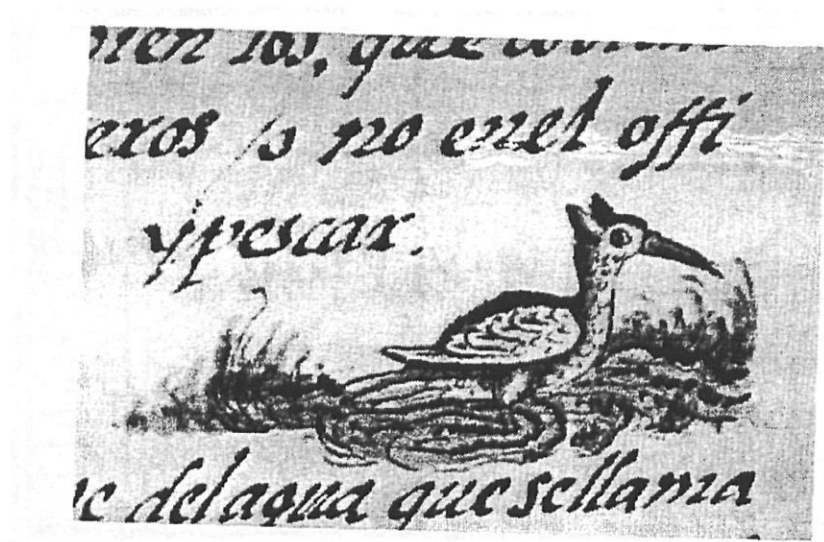 los, que
exos no enel offi
y pescar.
del agua que se llama